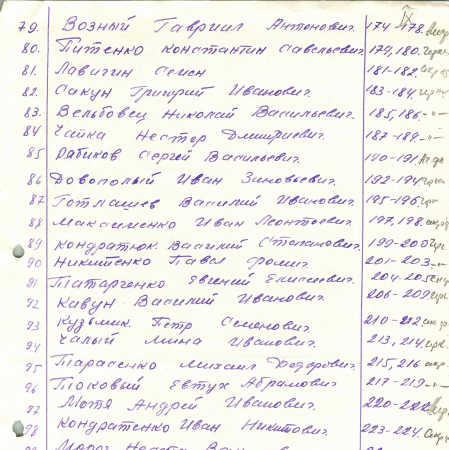 IX
79. Возный Гавриил Антонович. 174-178.
80. Питенко Константин Савельевич. 179, 180.
81. Лавигин Семен 181-182.
82. Сакун Григорий Иванович. 183-184.
83. Вельбовец Николай Васильевич. 185, 186. -"-
84 Чайка Нестер Дмитриевич. 187-189. -"-
85 Рябиков Сергей Васильевич. 190-191.
86 Довополый Иван Зиновьевич. 192-194
87 Готлашев Василий Иванович. 195-196
88 Максименко Иван Леонтьевич. 197, 198.
89 Кондратюк. Василий Степанович. 199-200
90 Никитенко Павел 201-203 -"-
91 Татарченко Евгений Елисеевич. 204-205
92 Кавун Василий Иванович. 206-209
93 Кузьмик. Петр Семенович. 210-212
94 Чалый Мина Иванович. 213, 214.
95 Тарасенко Михаил Федорович. 215, 216
96 Токовый Евтух Абрамович 217-219 -"-
97 Мотя Андрей Иванович. 220-222
98 Кондратенко Иван Никитович. 223-224.